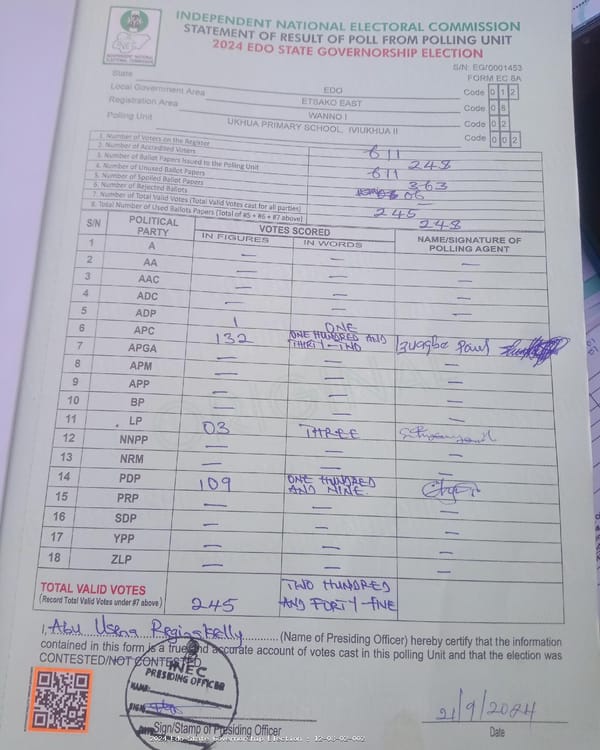 INDEPENDENT NATIONAL ELECTORAL COMMISSION
STATEMENT OF RESULT OF POLL FROM POLLING UNIT
2024 EDO STATE GOVERNORSHIP ELECTION
S/N: EG/0001453
FORM EC 8A
State EDO Code 0 1 2
Local Government Area ETSAKO EAST Code 0 8
Registration Area WANNO I Code 0 2
Polling Unit UKHUA PRIMARY SCHOOL, IVIUKHUA II Code 0 0 2
1. Number of Voters on the Register 611
2. Number of Accredited Voters 248
3. Number of Ballot Papers Issued to the Polling Unit 611
4. Number of Unused Ballot Papers 363
5. Number of Spoiled Ballot Papers
6. Number of Rejected Ballots
7. Number of Total Valid Votes (Total Valid Votes cast for all parties) 245
8. Total Number of Used Ballots Papers (Total of #5 + #6 + #7 above) 248
S/N POLITICAL PARTY VOTES SCORED NAME/SIGNATURE OF POLLING AGENT
IN FIGURES IN WORDS
1 A — — —
2 AA — — —
3 AAC — — —
4 ADC — — —
5 ADP 1 ONE
6 APC 132 ONE HUNDRED AND THIRTY-TWO
7 APGA — — —
8 APM — — —
9 APP — — —
10 BP — — —
11 LP 03 THREE
12 NNPP — — —
13 NRM — — —
14 PDP 109 ONE HUNDRED AND NINE
15 PRP — — —
16 SDP — — —
17 YPP — — —
18 ZLP — — —
TOTAL VALID VOTES
(Record Total Valid Votes under #7 above) 245 TWO HUNDRED AND FORTY-FIVE
I, Abu Usena (Name of Presiding Officer) hereby certify that the information
contained in this form is a true and accurate account of votes cast in this polling Unit and that the election was
CONTESTED/NOT CONTESTED
INEC
PRESIDING OFFICER
NAME:
SIGN
DATE
Sign/Stamp of Presiding Officer
21/9/2024
Date
2024 Edo State Governorship Election - 12-08-02-002